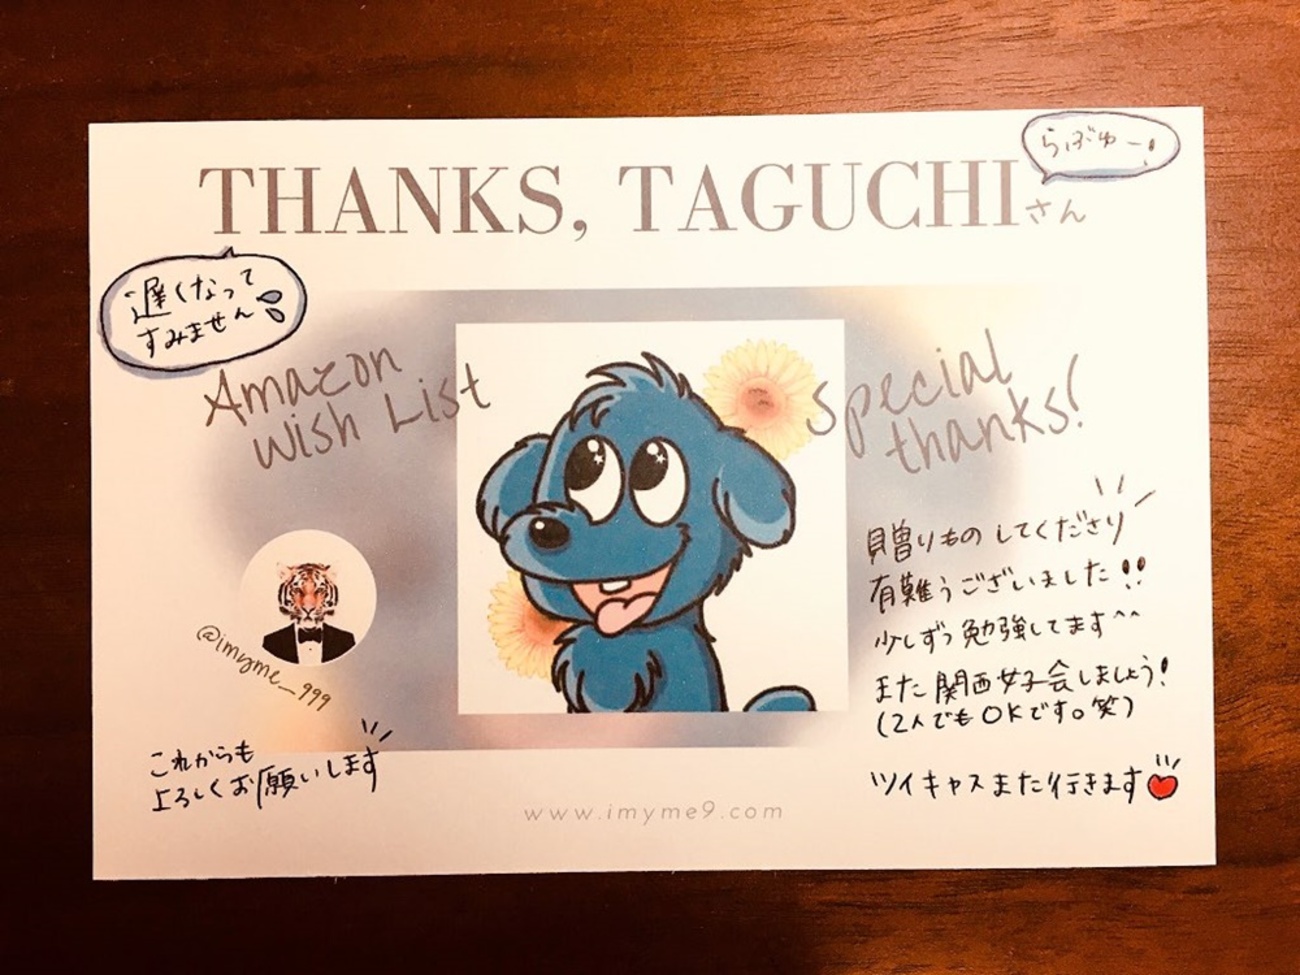 らぶゅー!
THANKS, TAGUCHIさん
遅くなって
すみません
Amazon
Wish List
Special
thanks!
@imyme_999
贈りものしてくださり
有難うございました!!
少しずつ勉強してます^^
また関西女子会しましょう!
(2人でもOKです。笑)
ツイキャスまた行きます
これからも
よろしくお願いします
www.imyme9.com